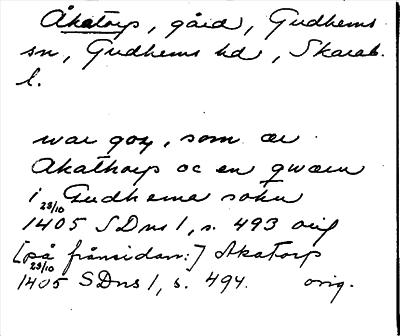 Åkatorp, gård, Gudhems
sn, Gudhems hd, Skarab.
l.
war goz, som ær
Akathorp oc en qwærn
i Gudhema sokn
28/10
1405 SDns 1, s. 493 orig
[på frånsidan:] Akatorp
28/10
1405 SDns 1, s. 494. orig.